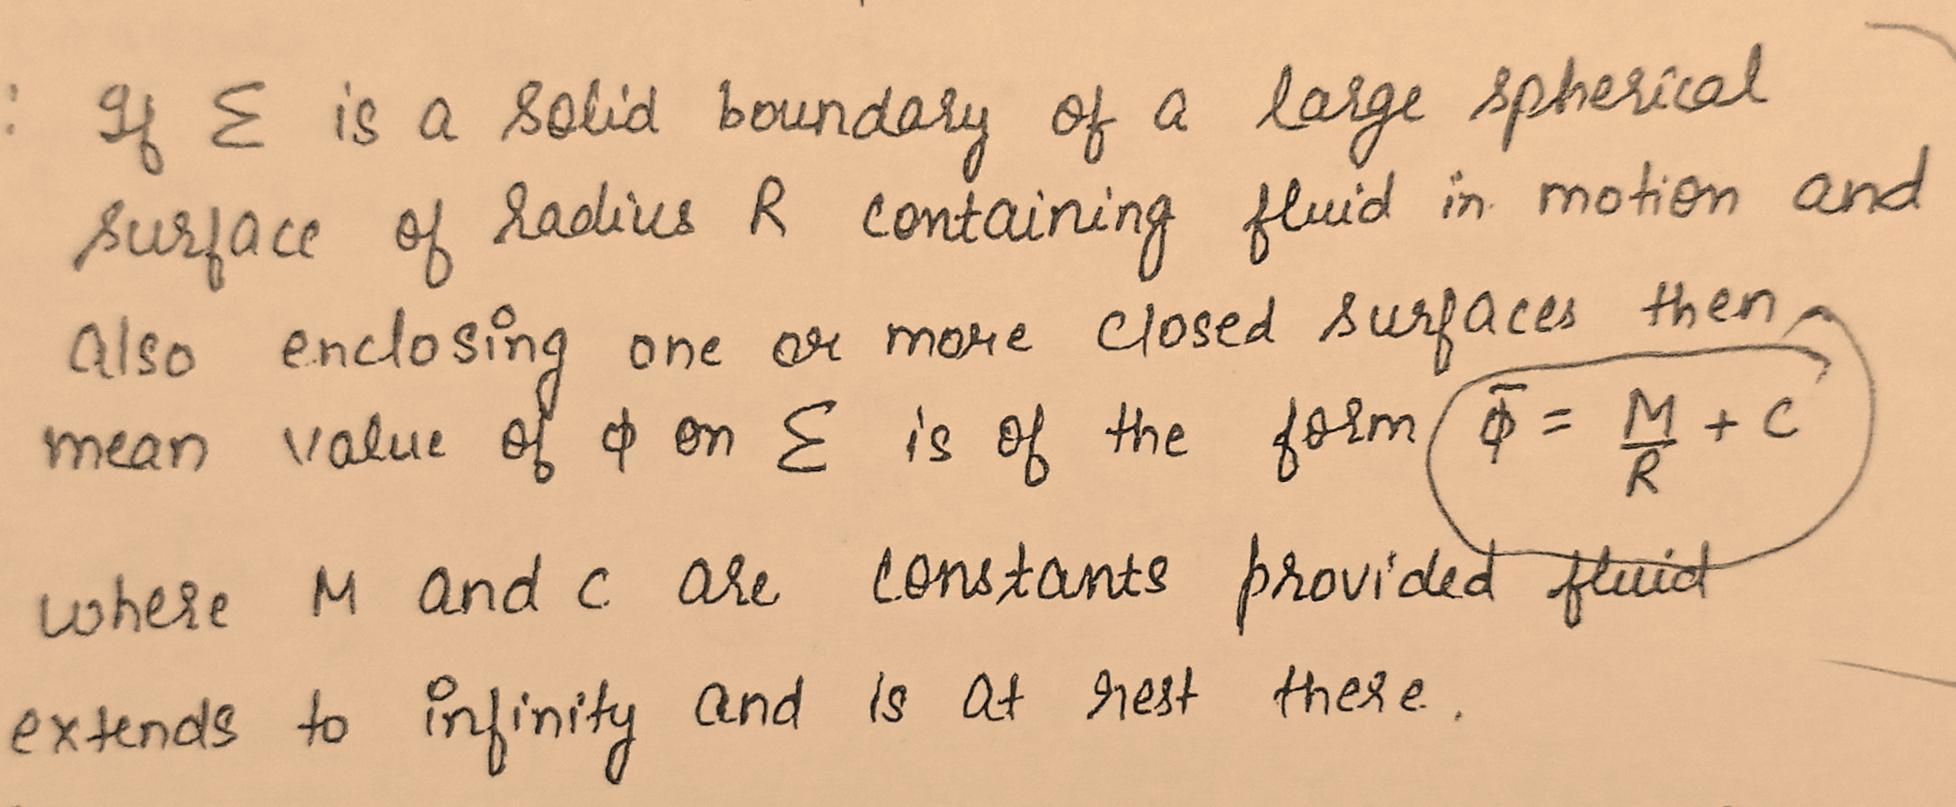 : If Σ is a solid boundary of a large spherical
surface of radius R containing fluid in motion and
also enclosing one or more closed surfaces then
mean value of ϕ on Σ is of the form ϕ̄ = M/R + C
where M and C are constants provided fluid
extends to infinity and is at rest there.